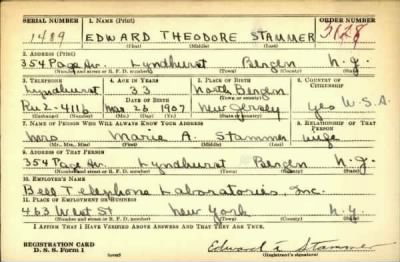 SERIAL NUMBER 1. NAME (Print) ORDER NUMBER
1489 EDWARD THEODORE STAMMER 3128
(First) (Middle) (Last)
2. ADDRESS (Print)
354 Page Av. Lyndhurst Bergen N.J.
(Number and street or R. F. D. number) (Town) (County) (State)
3. TELEPHONE 4. AGE IN YEARS 5. PLACE OF BIRTH 6. COUNTRY OF CITIZENSHIP
Lyndhurst 33 North Bergen
(Exchange) DATE OF BIRTH (Town or county)
Ru 2-4116 Mar 26 1907 New Jersey Yes U.S.A.
(Number) (Mo.) (Day) (Yr.) (State or country)
7. NAME OF PERSON WHO WILL ALWAYS KNOW YOUR ADDRESS 8. RELATIONSHIP OF THAT PERSON
Mrs Marie A. Stammer wife
(Mr., Mrs., Miss) (First) (Middle) (Last)
9. ADDRESS OF THAT PERSON
354 Page Av. Lyndhurst Bergen N.J.
(Number and street or R. F. D. number) (Town) (County) (State)
10. EMPLOYER'S NAME
Bell Telephone Laboratories, Inc.
11. PLACE OF EMPLOYMENT OR BUSINESS
463 West St New York N.Y.
(Number and street or R. F. D. number) (Town) (County) (State)
I AFFIRM THAT I HAVE VERIFIED ABOVE ANSWERS AND THAT THEY ARE TRUE.
REGISTRATION CARD
D. S. S. Form 1 (over) Edward T. Stammer
(Registrant's signature)